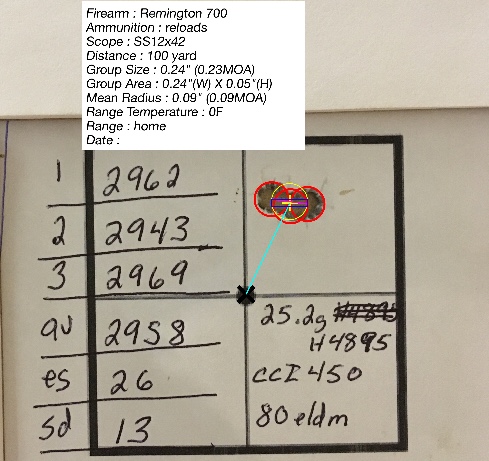 Firearm : Remington 700
Ammunition : reloads
Scope : SS12x42
Distance : 100 yard
Group Size : 0.24" (0.23MOA)
Group Area : 0.24"(W) X 0.05"(H)
Mean Radius : 0.09" (0.09MOA)
Range Temperature : 0F
Range : home
Date :
1 2962
2 2943
3 2969
av 2958
es 26
sd 13
25.2g H4895
H4895
CCI 450
80 eldm